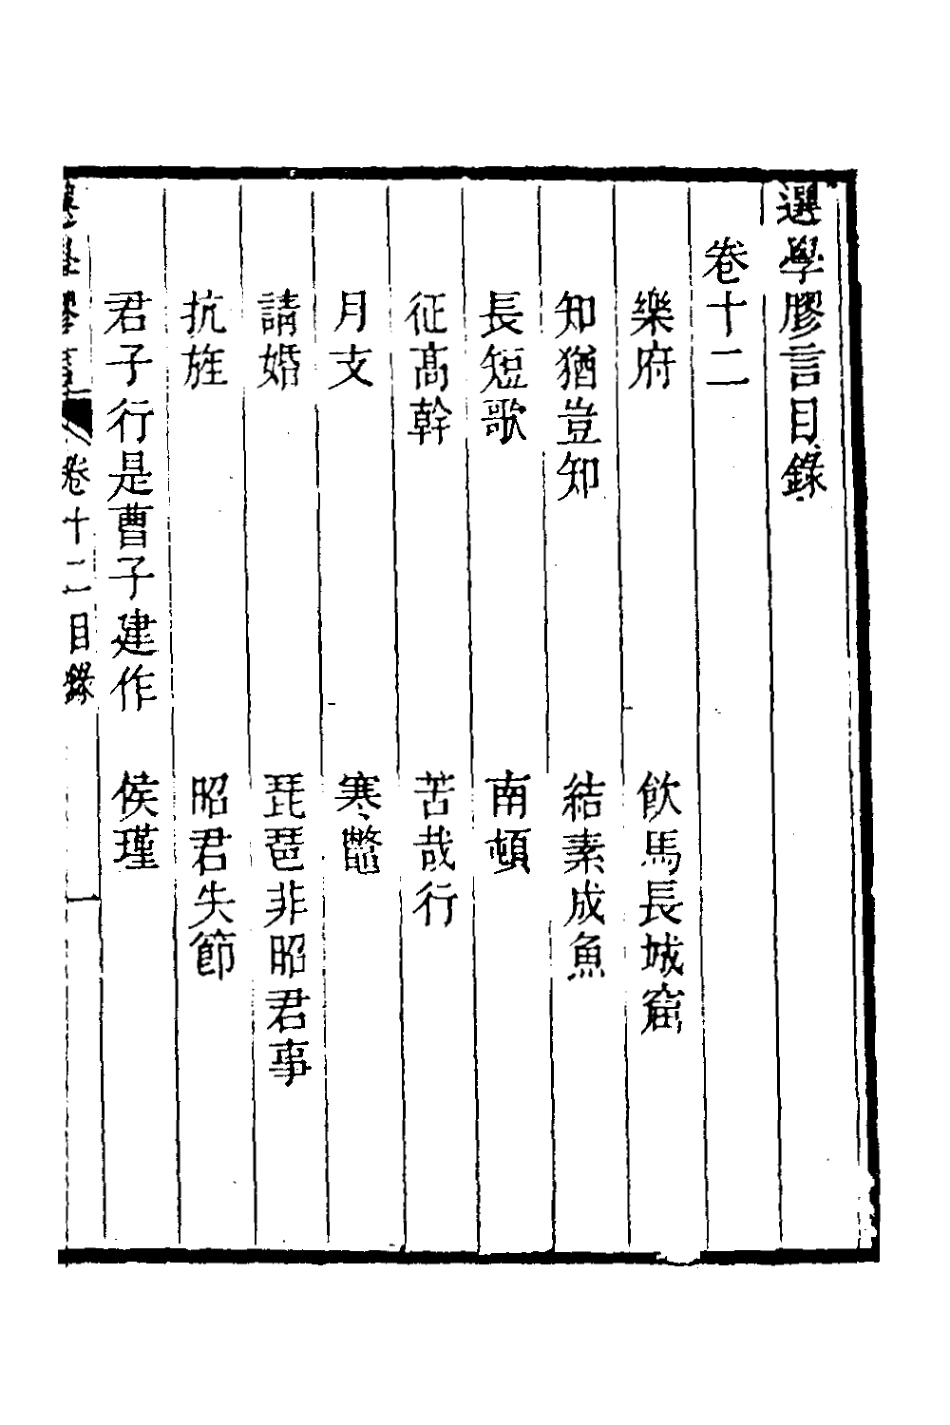 選學膠言目錄
卷十二
樂府　飲馬長城窟
知猶豈知　結素成魚
長短歌　南頓
征高幹　苦哉行
月支　寒鼈
請婚　琵琶非昭君事
抗旌　昭君失節
君子行是曹子建作　侯瑾
選學膠言　卷十二目錄　一